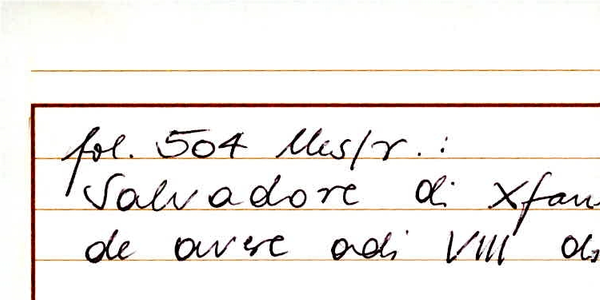 fol. 504 lles/r. :
Salvadore di Xfan
de avere adi VIII di